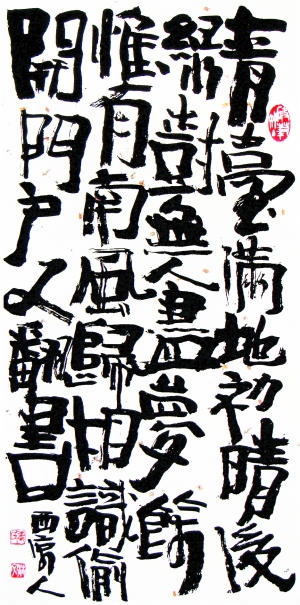 青臺滿地初晴後
綠樹無人晝夢餘
惟有南風歸相識偷
開門户又翻書